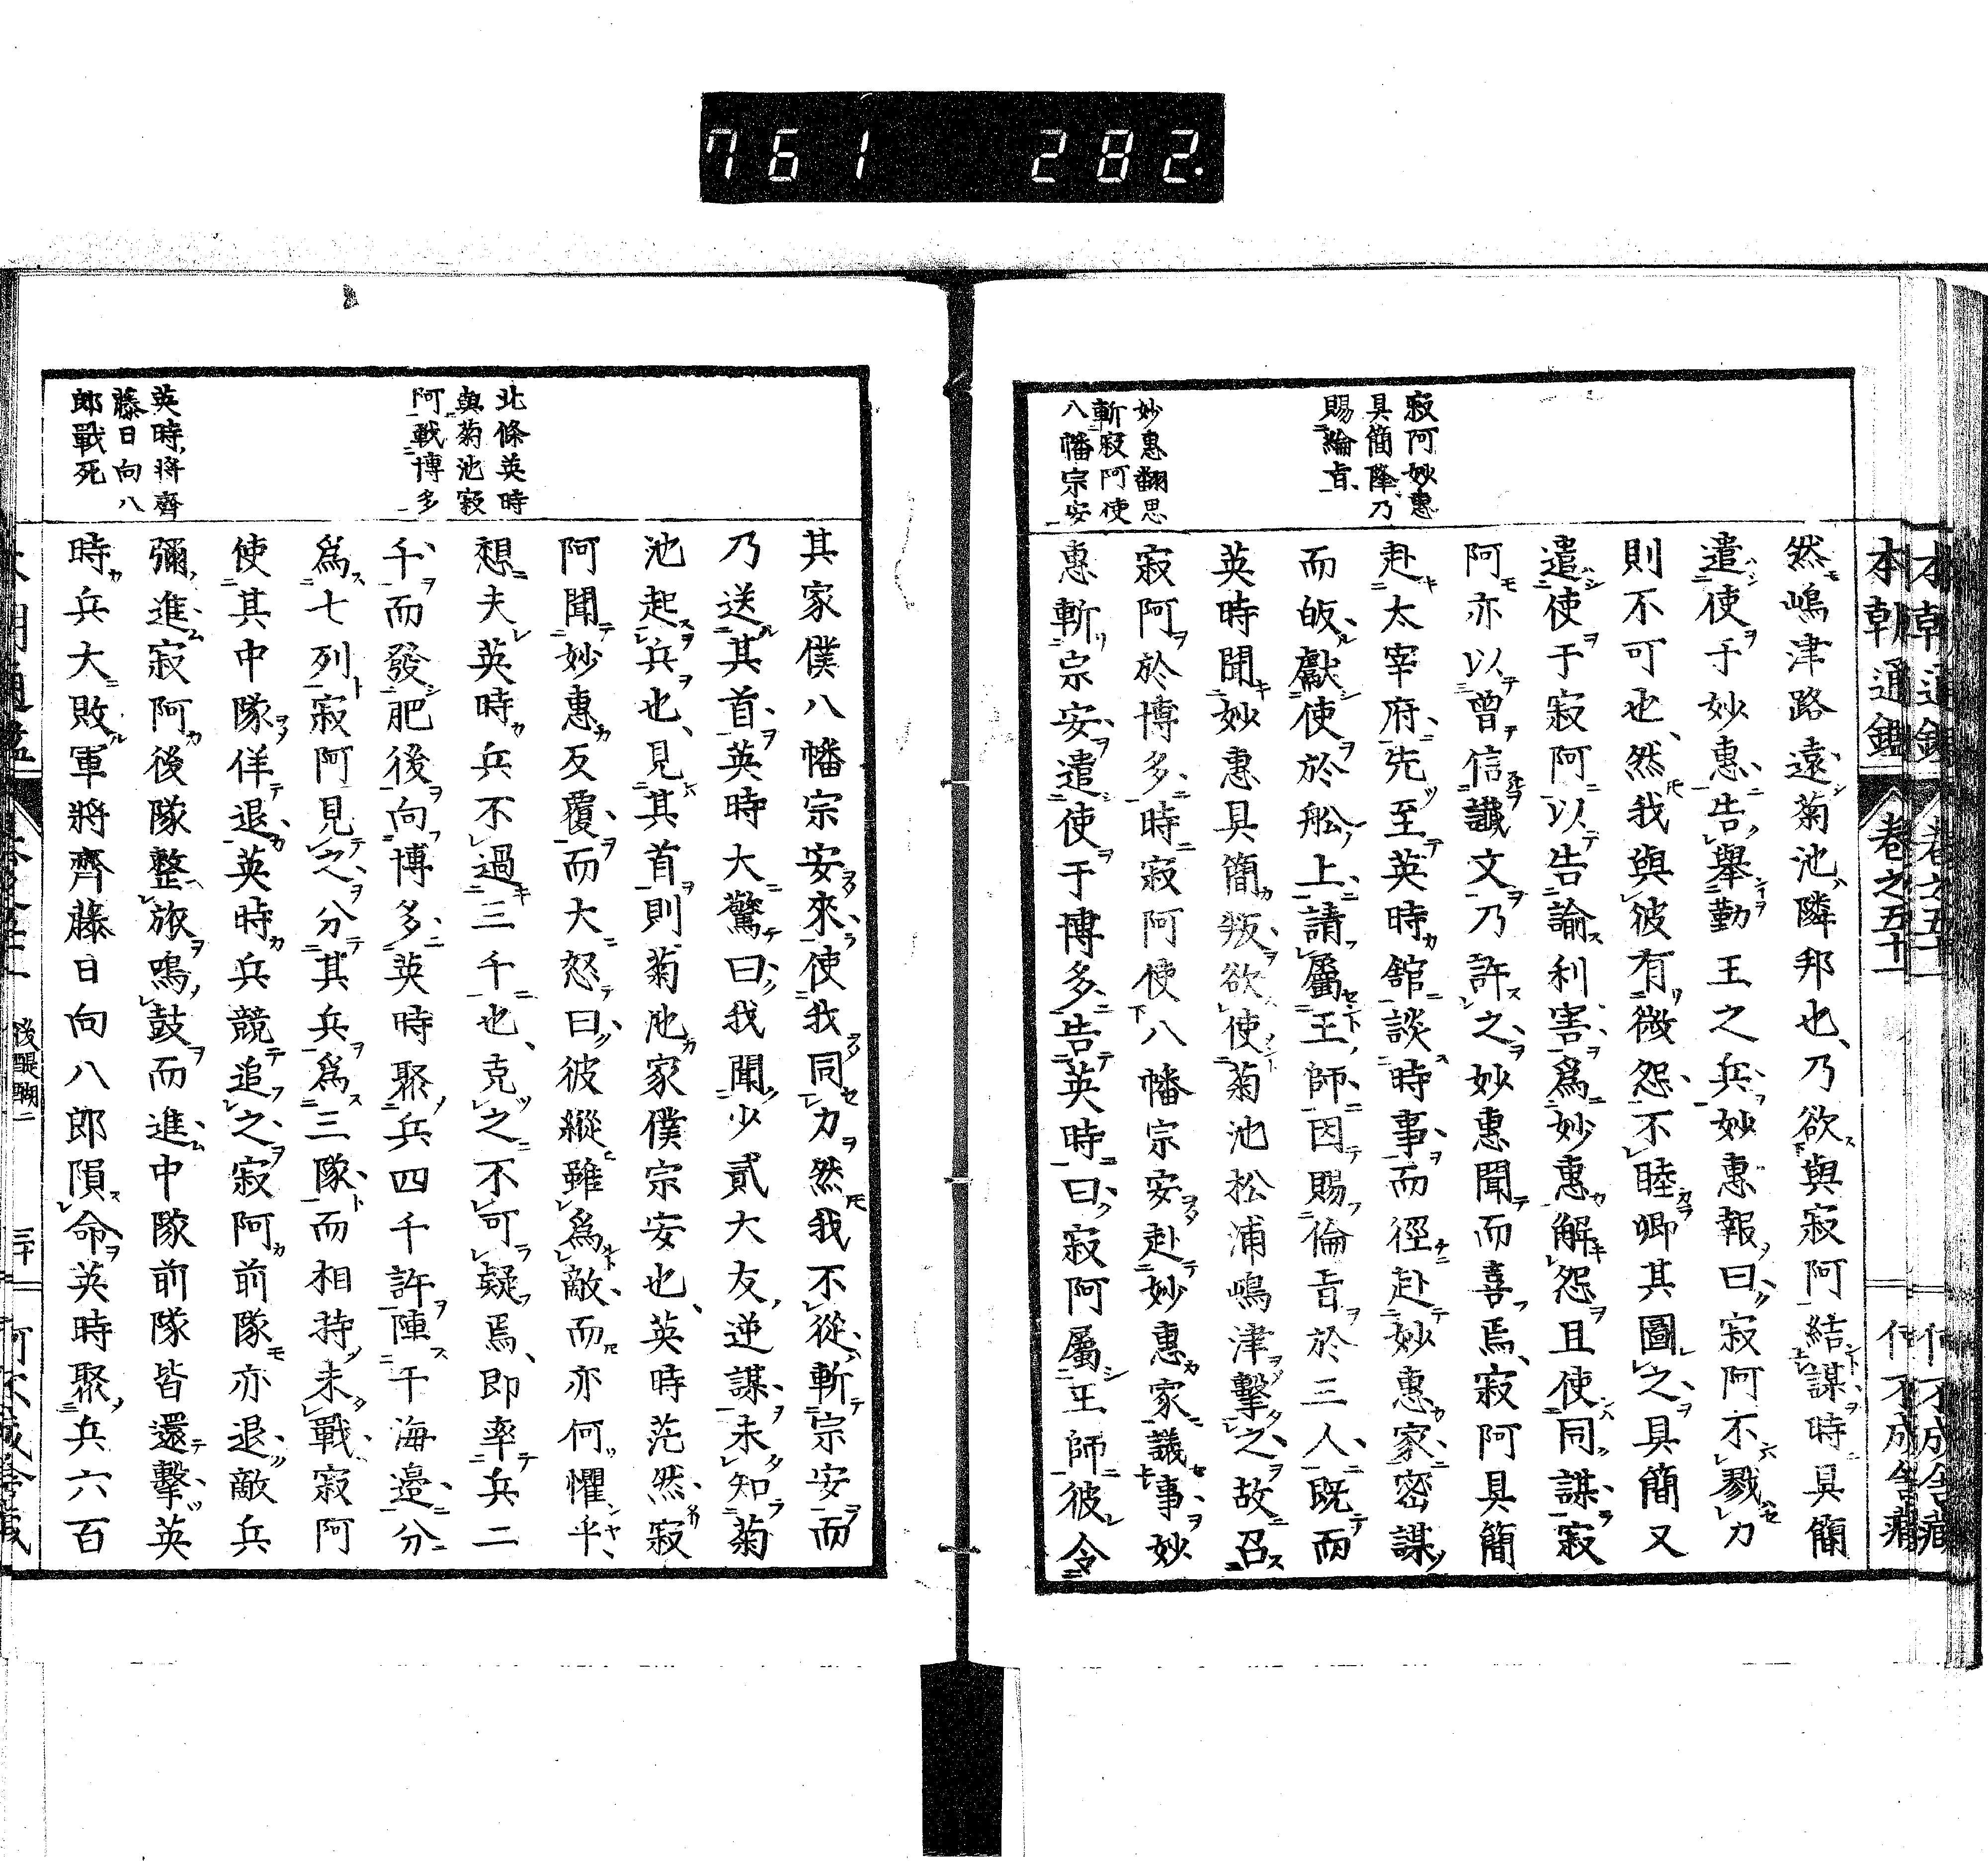 761 282.
本朝通鑑 卷之五十一
寂阿妙惠
具簡降乃
賜綸旨
妙惠翻思
斬寂阿使
八幡宗安
然嶋津路遠菊池隣邦也乃欲與寂阿結謀時具簡
遣使于妙惠告舉勤王之兵妙惠報曰寂阿不戮力
則不可也然我與彼有微怨不睦卿其圖之具簡又
遣使于寂阿以告諭利害爲妙惠解怨且使同謀寂
阿亦以曾信讖文乃許之妙惠聞而喜焉寂阿具簡
赴太宰府先至英時舘談時事而徑赴妙惠家密謀
而皈獻使於舩上請屬王師因賜倫旨於三人既而
英時聞妙惠具簡叛欲使菊池松浦嶋津擊之故召
寂阿於博多時寂阿使八幡宗安赴妙惠家議事妙
惠斬宗安遣使于博多告英時曰寂阿屬王師彼令
北條英時
與菊池寂
阿戰博多
英時將齊
藤日向八
郎戰死
其家僕八幡宗安來使我同力然我不從斬宗安而
乃送其首英時大驚曰我聞少貳大友逆謀未知菊
池起兵也見其首則菊池家僕宗安也英時茫然寂
阿聞妙惠反覆而大怒曰彼縱雖爲敵而亦何懼乎
想夫英時兵不過三千也克之不可疑焉即率兵二
千而發肥後向博多英時聚兵四千許陣于海邉分
爲七列寂阿見之分其兵爲三隊而相持未戰寂阿
使其中隊佯退英時兵競追之寂阿前隊亦退敵兵
彌進寂阿後隊整旅鳴鼓而進中隊前隊皆還擊英
時兵大敗軍將齊藤日向八郎隕命英時聚兵六百
後醍醐二 三十